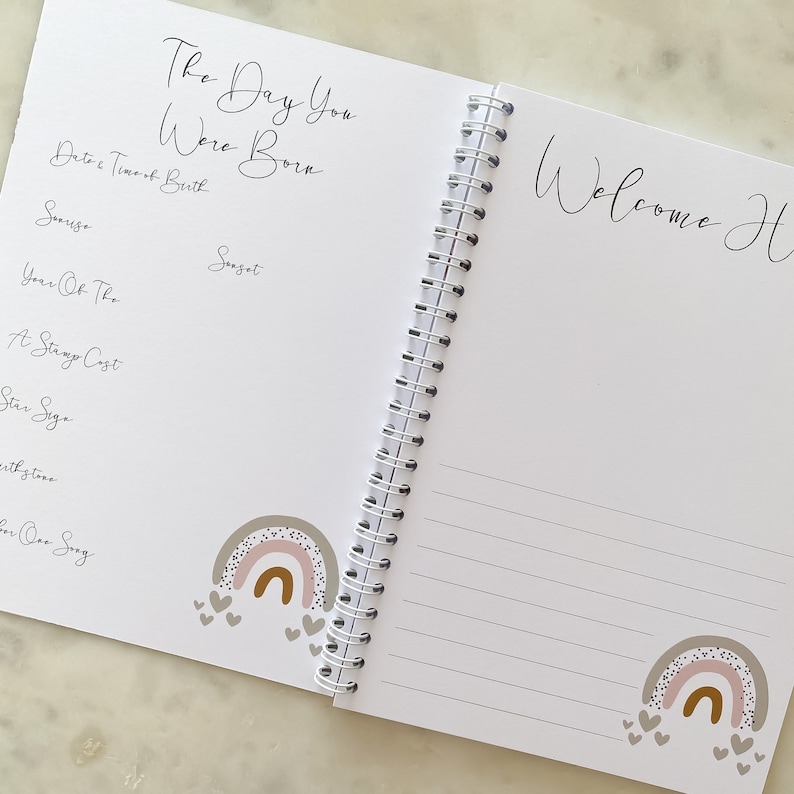 The Day You
Were Born
Date & Time of Birth
Sunrise
Sunset
Year Of The
A Stamp Cost
Star Sign
rthstone
ber One Song
Welcome H